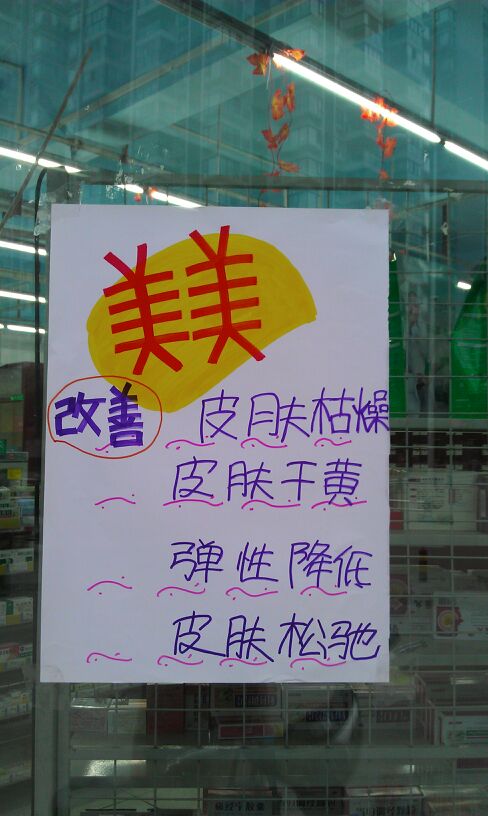 美美
改善 皮肤枯燥
皮肤干黄
弹性降低
皮肤松驰